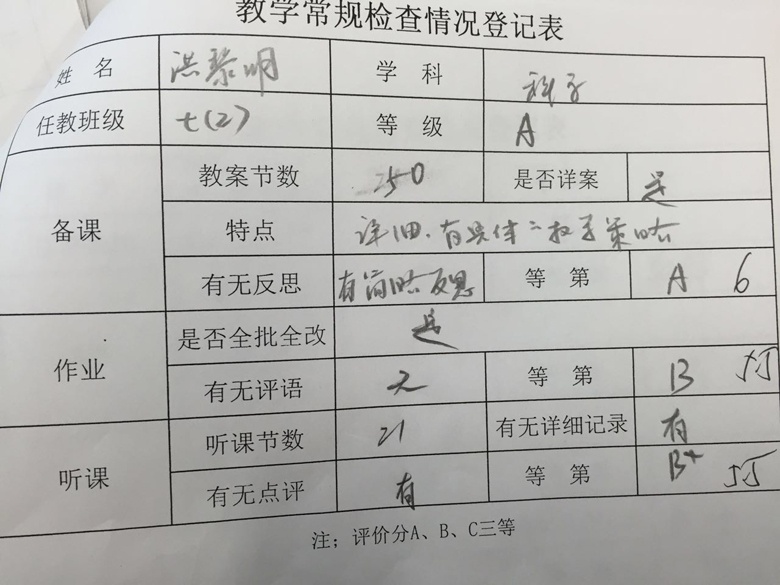 教学常规检查情况登记表
姓 名 洪黎明 学 科 科学
任教班级 七(2) 等 级 A
备课 教案节数 250 是否详案 是
特点 详细.有具体二教学策略
有无反思 有简略反思 等 第 A 6
作业 是否全批全改 是
有无评语 无 等 第 B
听课 听课节数 21 有无详细记录 有
有无点评 有 等 第 B+
注；评价分A、B、C三等